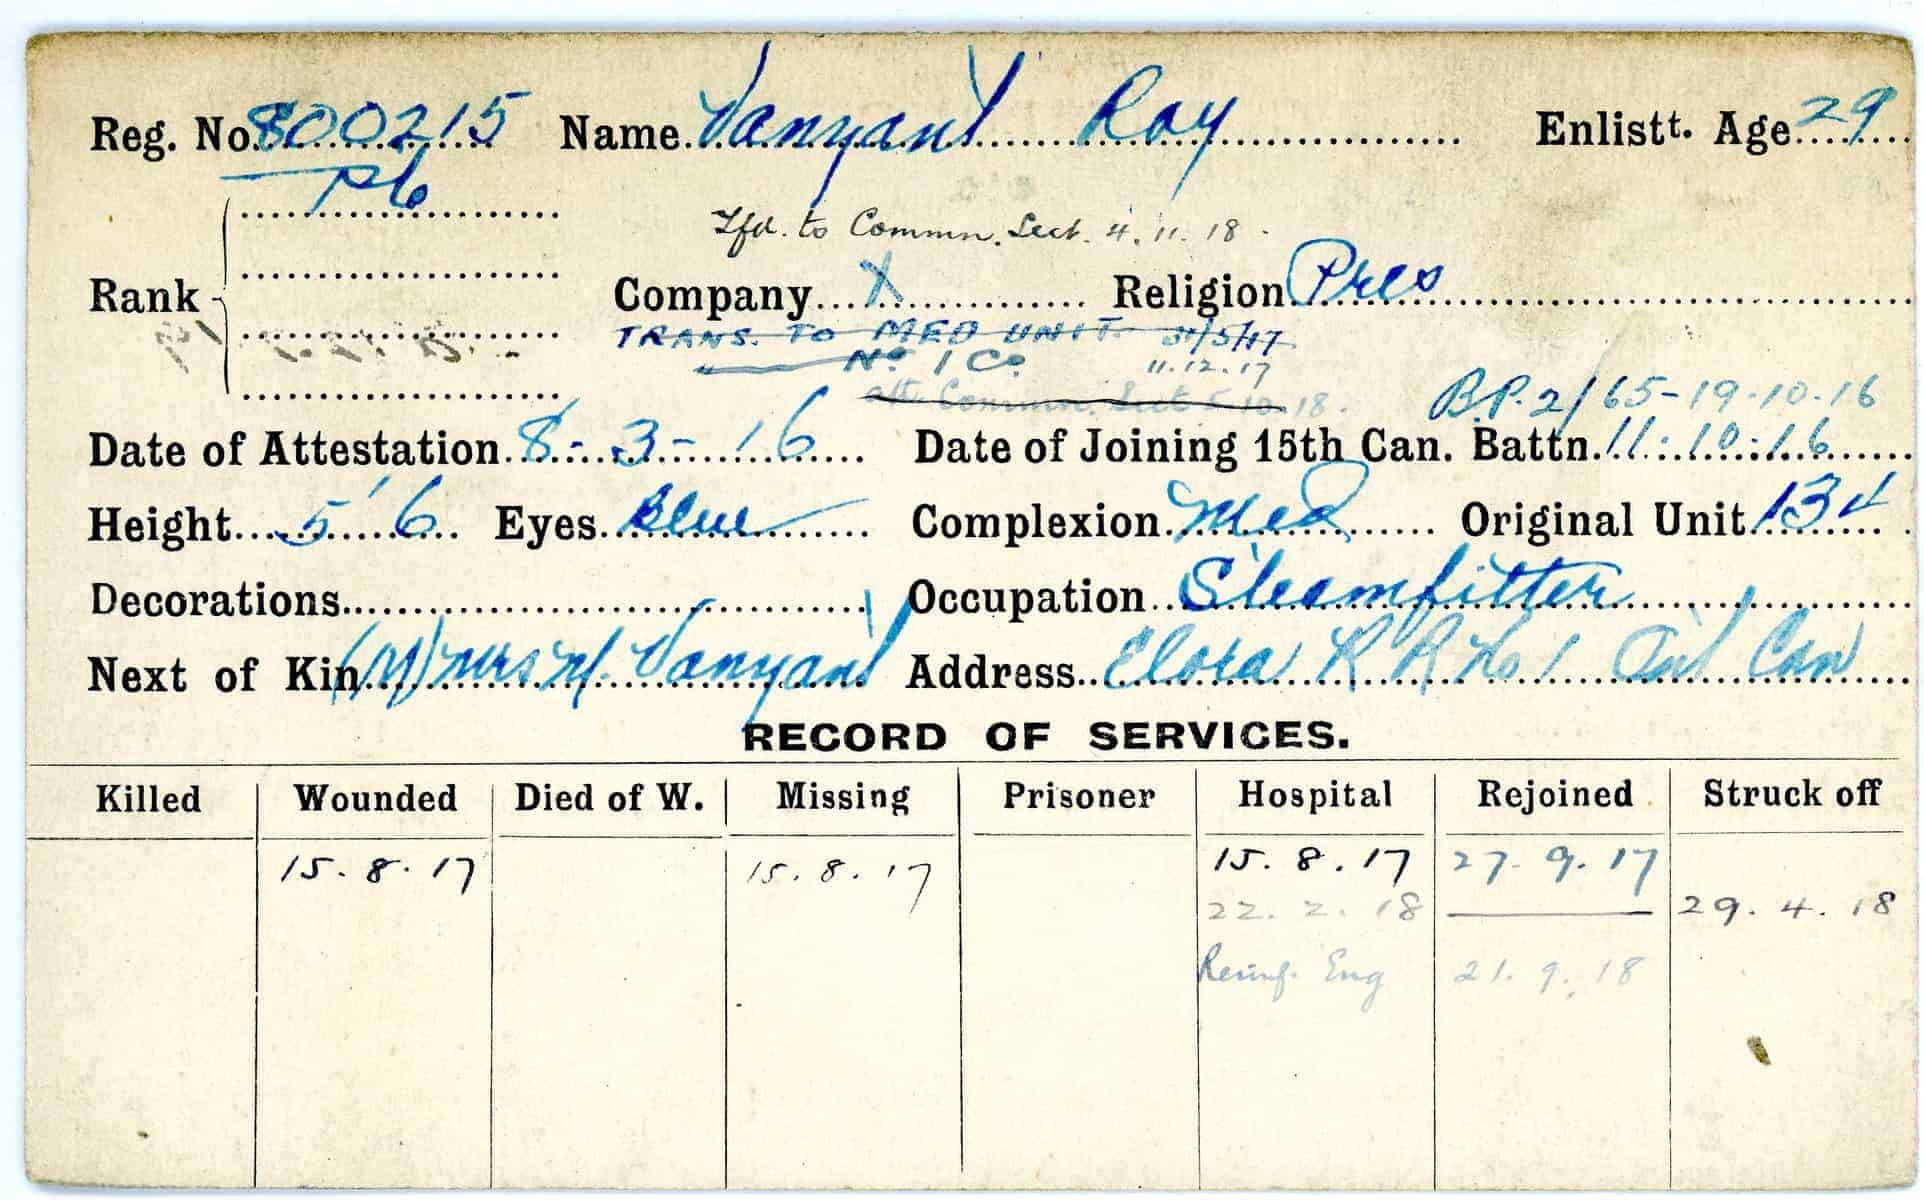 Reg. No. 800215 Name Vanyant Roy Enlistt. Age 29
Pte
Tfd. to Commn. Sect. 4. 11. 18.
Rank Company X Religion Pres
TRANS. TO MED UNIT 31/5/17
No 1 Co. 11.12.17
att. Commn. Sect 5.10.18.
B.P. 2/65-19-10-16
Date of Attestation 8-3-16 Date of Joining 15th Can. Battn. 11:10:16
Height 5' 6 Eyes Blue Complexion Med Original Unit 134
Decorations Occupation Steamfitter
Next of Kin (M) Mrs M. Vanyant Address Elora R R No 1 Ont Can
RECORD OF SERVICES.
Killed Wounded Died of W. Missing Prisoner Hospital Rejoined Struck off
15. 8. 17 15. 8. 17 15. 8. 17 27. 9. 17
22. 2. 18 29. 4. 18
Reinf. Eng 21. 9. 18